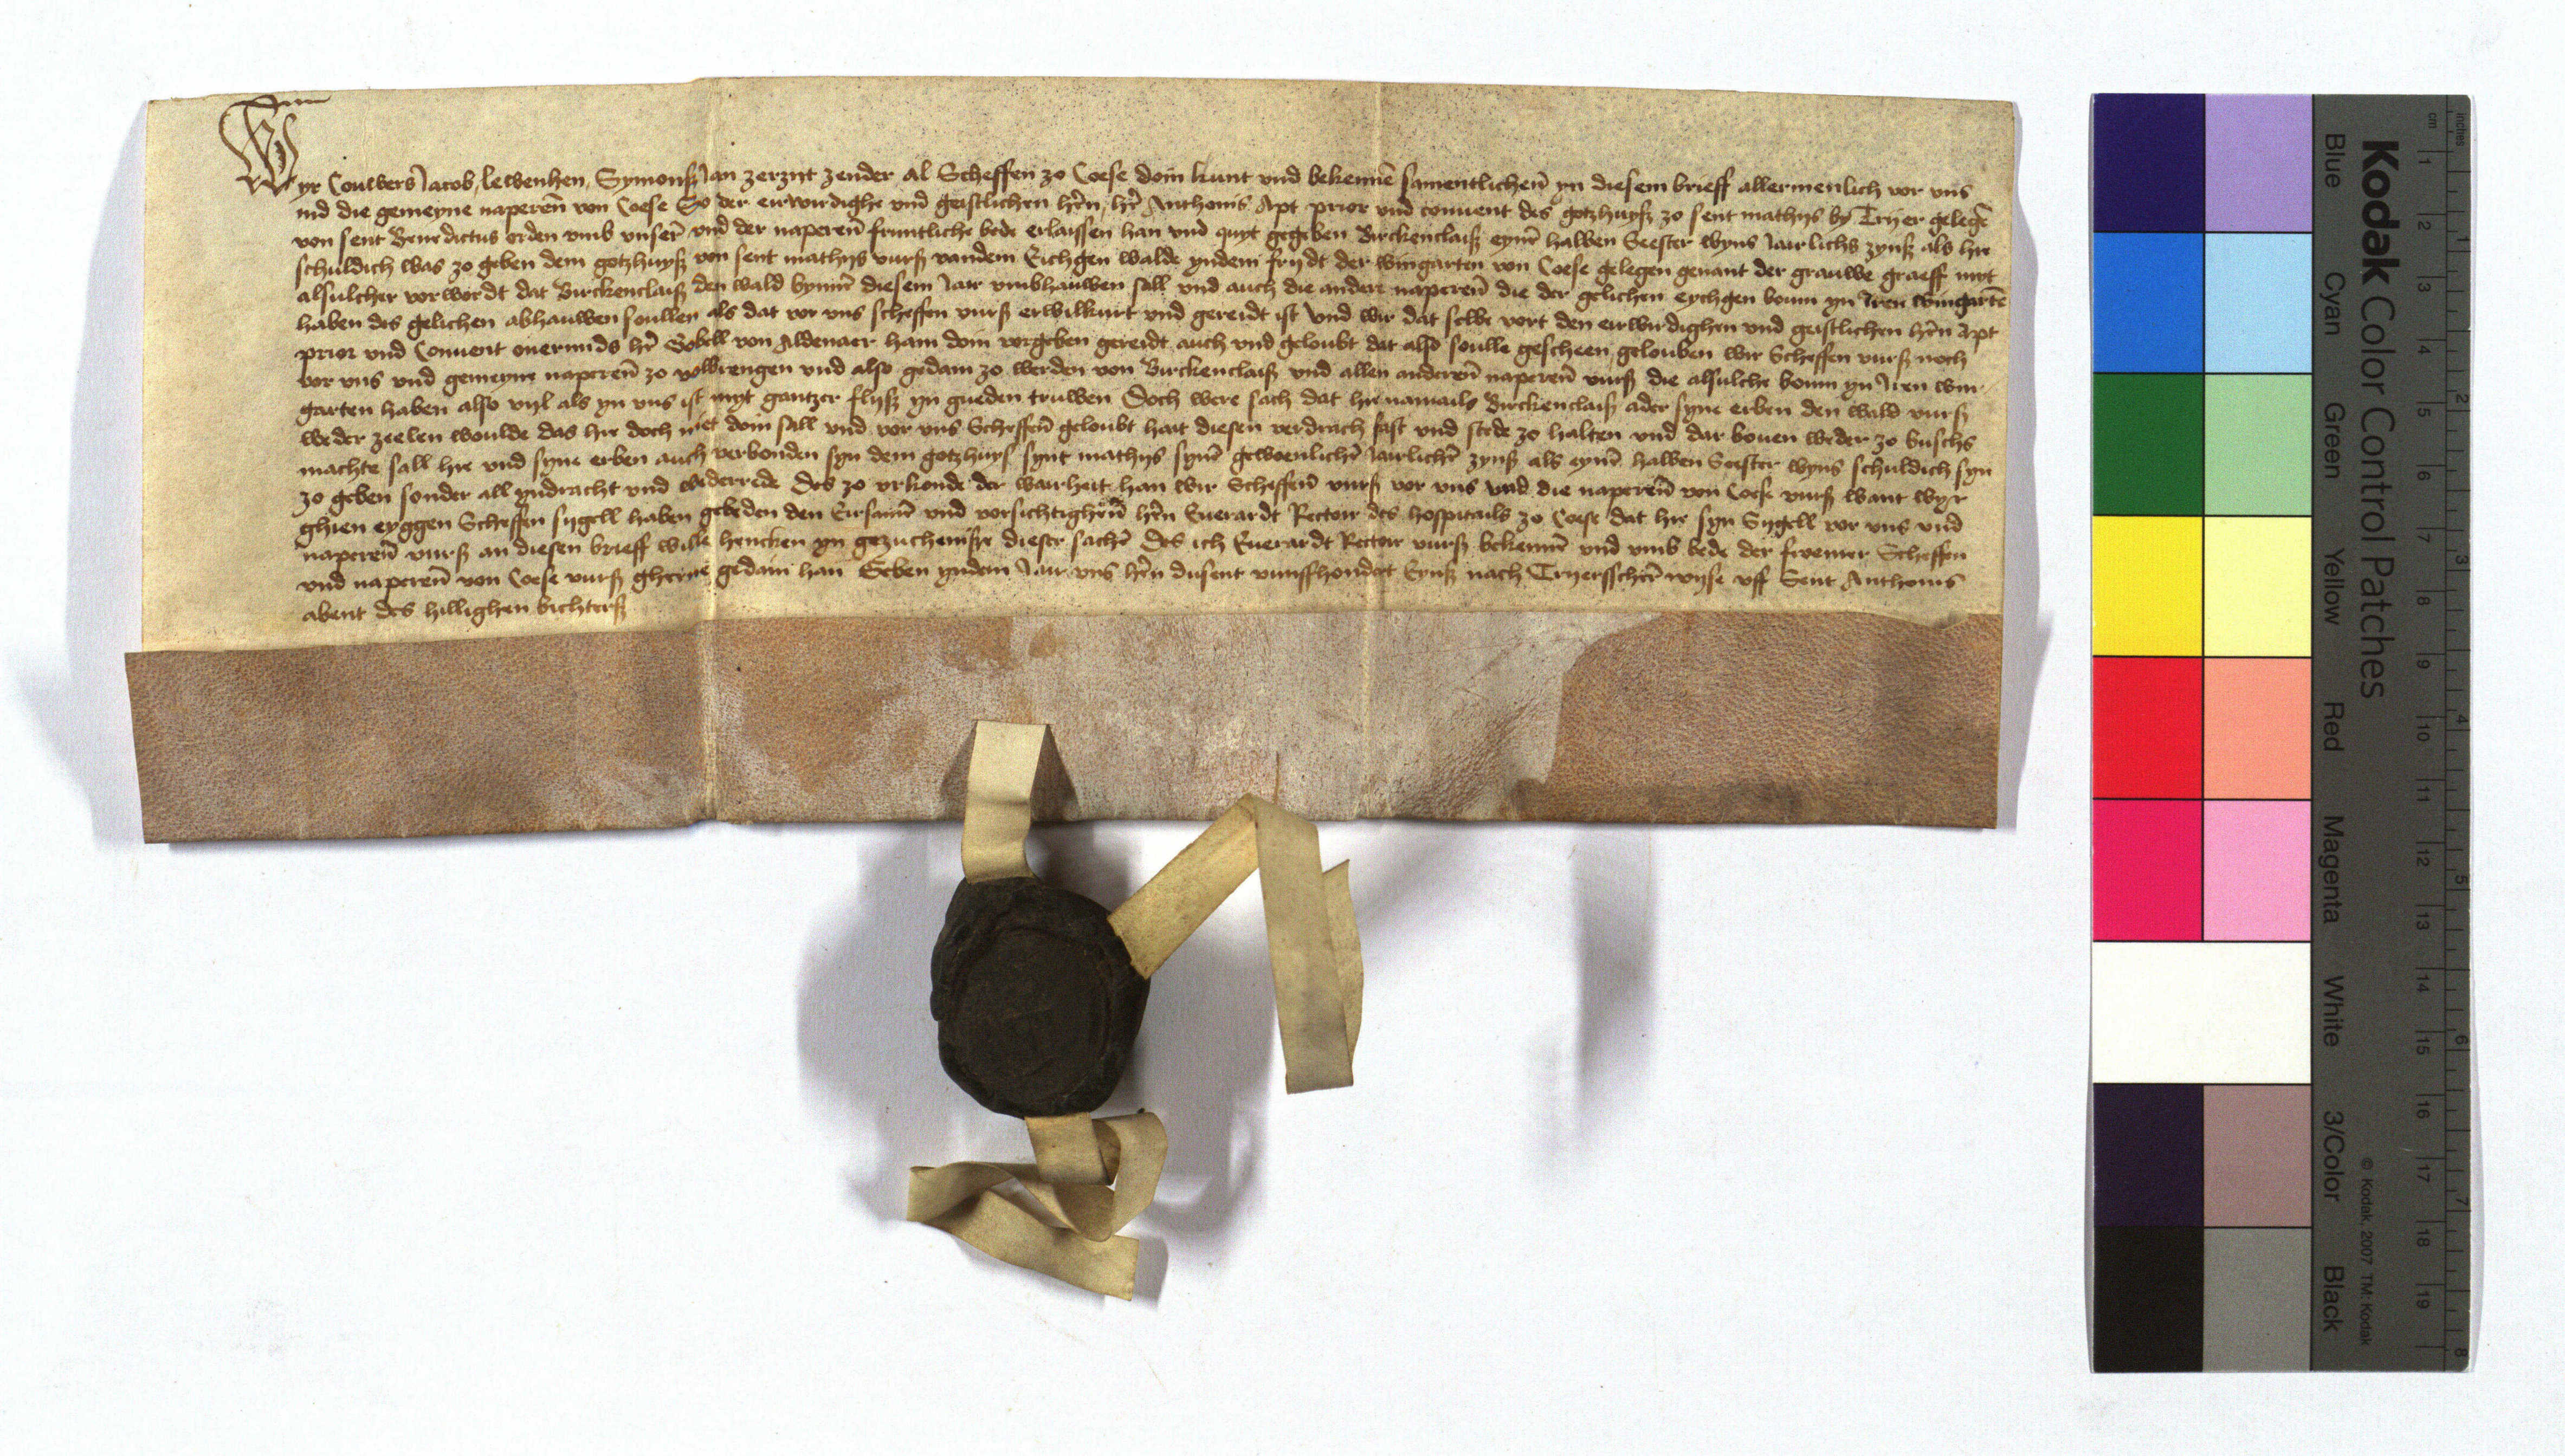 Wyr Couwers Jacob, lewenhen, Symonß Jan zerznt zender al Scheffen zo Coese doin kunt vnd bekennē samentlichen̄ yn diesem brieff allermenlich vor vns
ind die gemeyne naperen̄ von Coese So der eirwirdighe vnd geistlichen hern, her Anthonis Apt prior vnd conuent des gotzhuyß zo sent mathys by Tryer gelegē
von sent Benedictus orden vmb vnser̄ vnd der naperen̄ fruntliche bede erlaissen han vnd quyt gegeben Birckenclaiß eynē halben Seester wyns Jairlichs zynß als hie
schuldich was zo geben dem gotzhuyß von sent mathys vurß vandem Eichgen walde yndem frydt der wingarten von Coese gelegen genant der grauwe graeff myt
alsulcher vorwordt dat Birckenclaiß den wald bynnē diesem Jair vmbhauwen sall vnd auch die ander naperen̄ die der gelichen eychgen boum yn Jren wingartē
haben des gelichen abhauwen soullen als dat vor vns scheffen vurß erwilkurt vnd gereidt ist Vnd wir dat selbe vort den eirwirdighen vnd geistlichen hern Apt
prior vnd Conuent ouermids her Gobell von Aldenaer hain doin vorgeben gereidt auch vnd geloubt dat also soulle gescheen, gelouben wir Scheffen vurß noch
vor vns vnd gemeyne naperen̄ zo volbrengen vnd also gedain zo werden von Birckenclaiß vnd allen anderen̄ naperen̄ vurß die alsulche boum yn Jren win
garten haben also vyl als yn vns ist myt gantzer flyß yn gueden truwen Doch were sach dat hie namails Birckenclaiß ader syne erben den wald vurß
weder zeelen woulde das hie doch niet doin sall vnd vor vns Scheffen̄ geloubt hait diesen verdrach fast vnd stede zo halten vnd dar bouen weder zo buschs
machte sall hie vnd syne erben auch verbonden syn dem gotzhuys synt mathys synē gewoenlichē Jairlichē zynß als eynē halben Seester wyns schuldich syn
zo geben sonder all yndracht vnd wederrede Des zo vrkonde der wairheit han wir Scheffen̄ vurß vor vns vnd die naperen̄ von Coese vurß want wyr
ghien eyggen Scheffen sygell haben gebeden den Eirsamē vnd vorsichtighen̄ hern Euerardt Rectoir des hospitails zo Coese dat hie syn Sygell vor vns vnd
naperen̄ vurß an diesen brieff wille hencken yn gezuchenisse dieser sachē Des ich Euerardt Rectoir vurß bekennē vnd vmb bede der fromer Scheffen
vnd naperen̄ von Coese vurß gherne gedain han Geben yndem Jair vns hern dusent vunffhondert Eynß nach Tryersschen̄ wyse vff Sent Anthonis
abent des hillighen bichterß
Kodak Color Control Patches
Blue Cyan Green Yellow Red Magenta White 3/Color Black
© Kodak, 2007 TM: Kodak
cm 1 2 3 4 5 6 7 8 9 10 11 12 13 14 15 16 17 18 19
inches 1 2 3 4 5 6 7 8